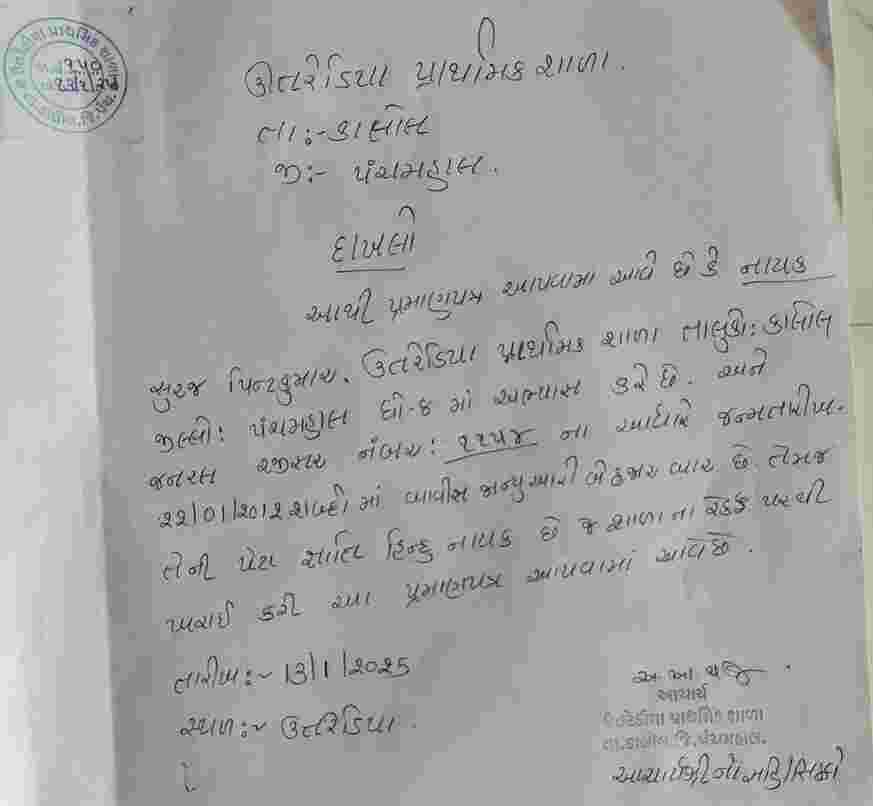 ઊતરેડિયા પ્રાથમિક શાળા.
તા:- કાલોલ
જી:- પંચમહાલ.
દાખલો
આથી પ્રમાણપત્ર આપવામા આવે છે કે નાયક
સુરજ પિન્ટુકુમાર. ઉતરેડિયા પ્રાથમિક શાળા તાલુકો: કાલોલ
જીલ્લો: પંચમહાલ ધો-૬ માં અભ્યાસ કરે છે. અને
જનરલ રજીસ્ટર નંબર: ના આધારે જન્મતારીખ
22/01/2012 શબ્દોમાં બાવીસ જાન્યુઆરી બે હજાર બાર છે. તેમજ
તેની પેટા જ્ઞાતિ હિન્દુ નાયક છે જે શાળાના રેકર્ડ પરથી
ખરાઈ કરી આ પ્રમાણપત્ર આપવામાં આવે છે.
તારીખ:- 13/1/2025
સ્થળ:- ઉતરેડિયા.
આચાર્ય
ઉતરેડીયા પ્રાથમિક શાળા
તા.કાલોલ, જિ.પંચમહાલ.
આચાર્યશ્રીનો સહિ/સિક્કો